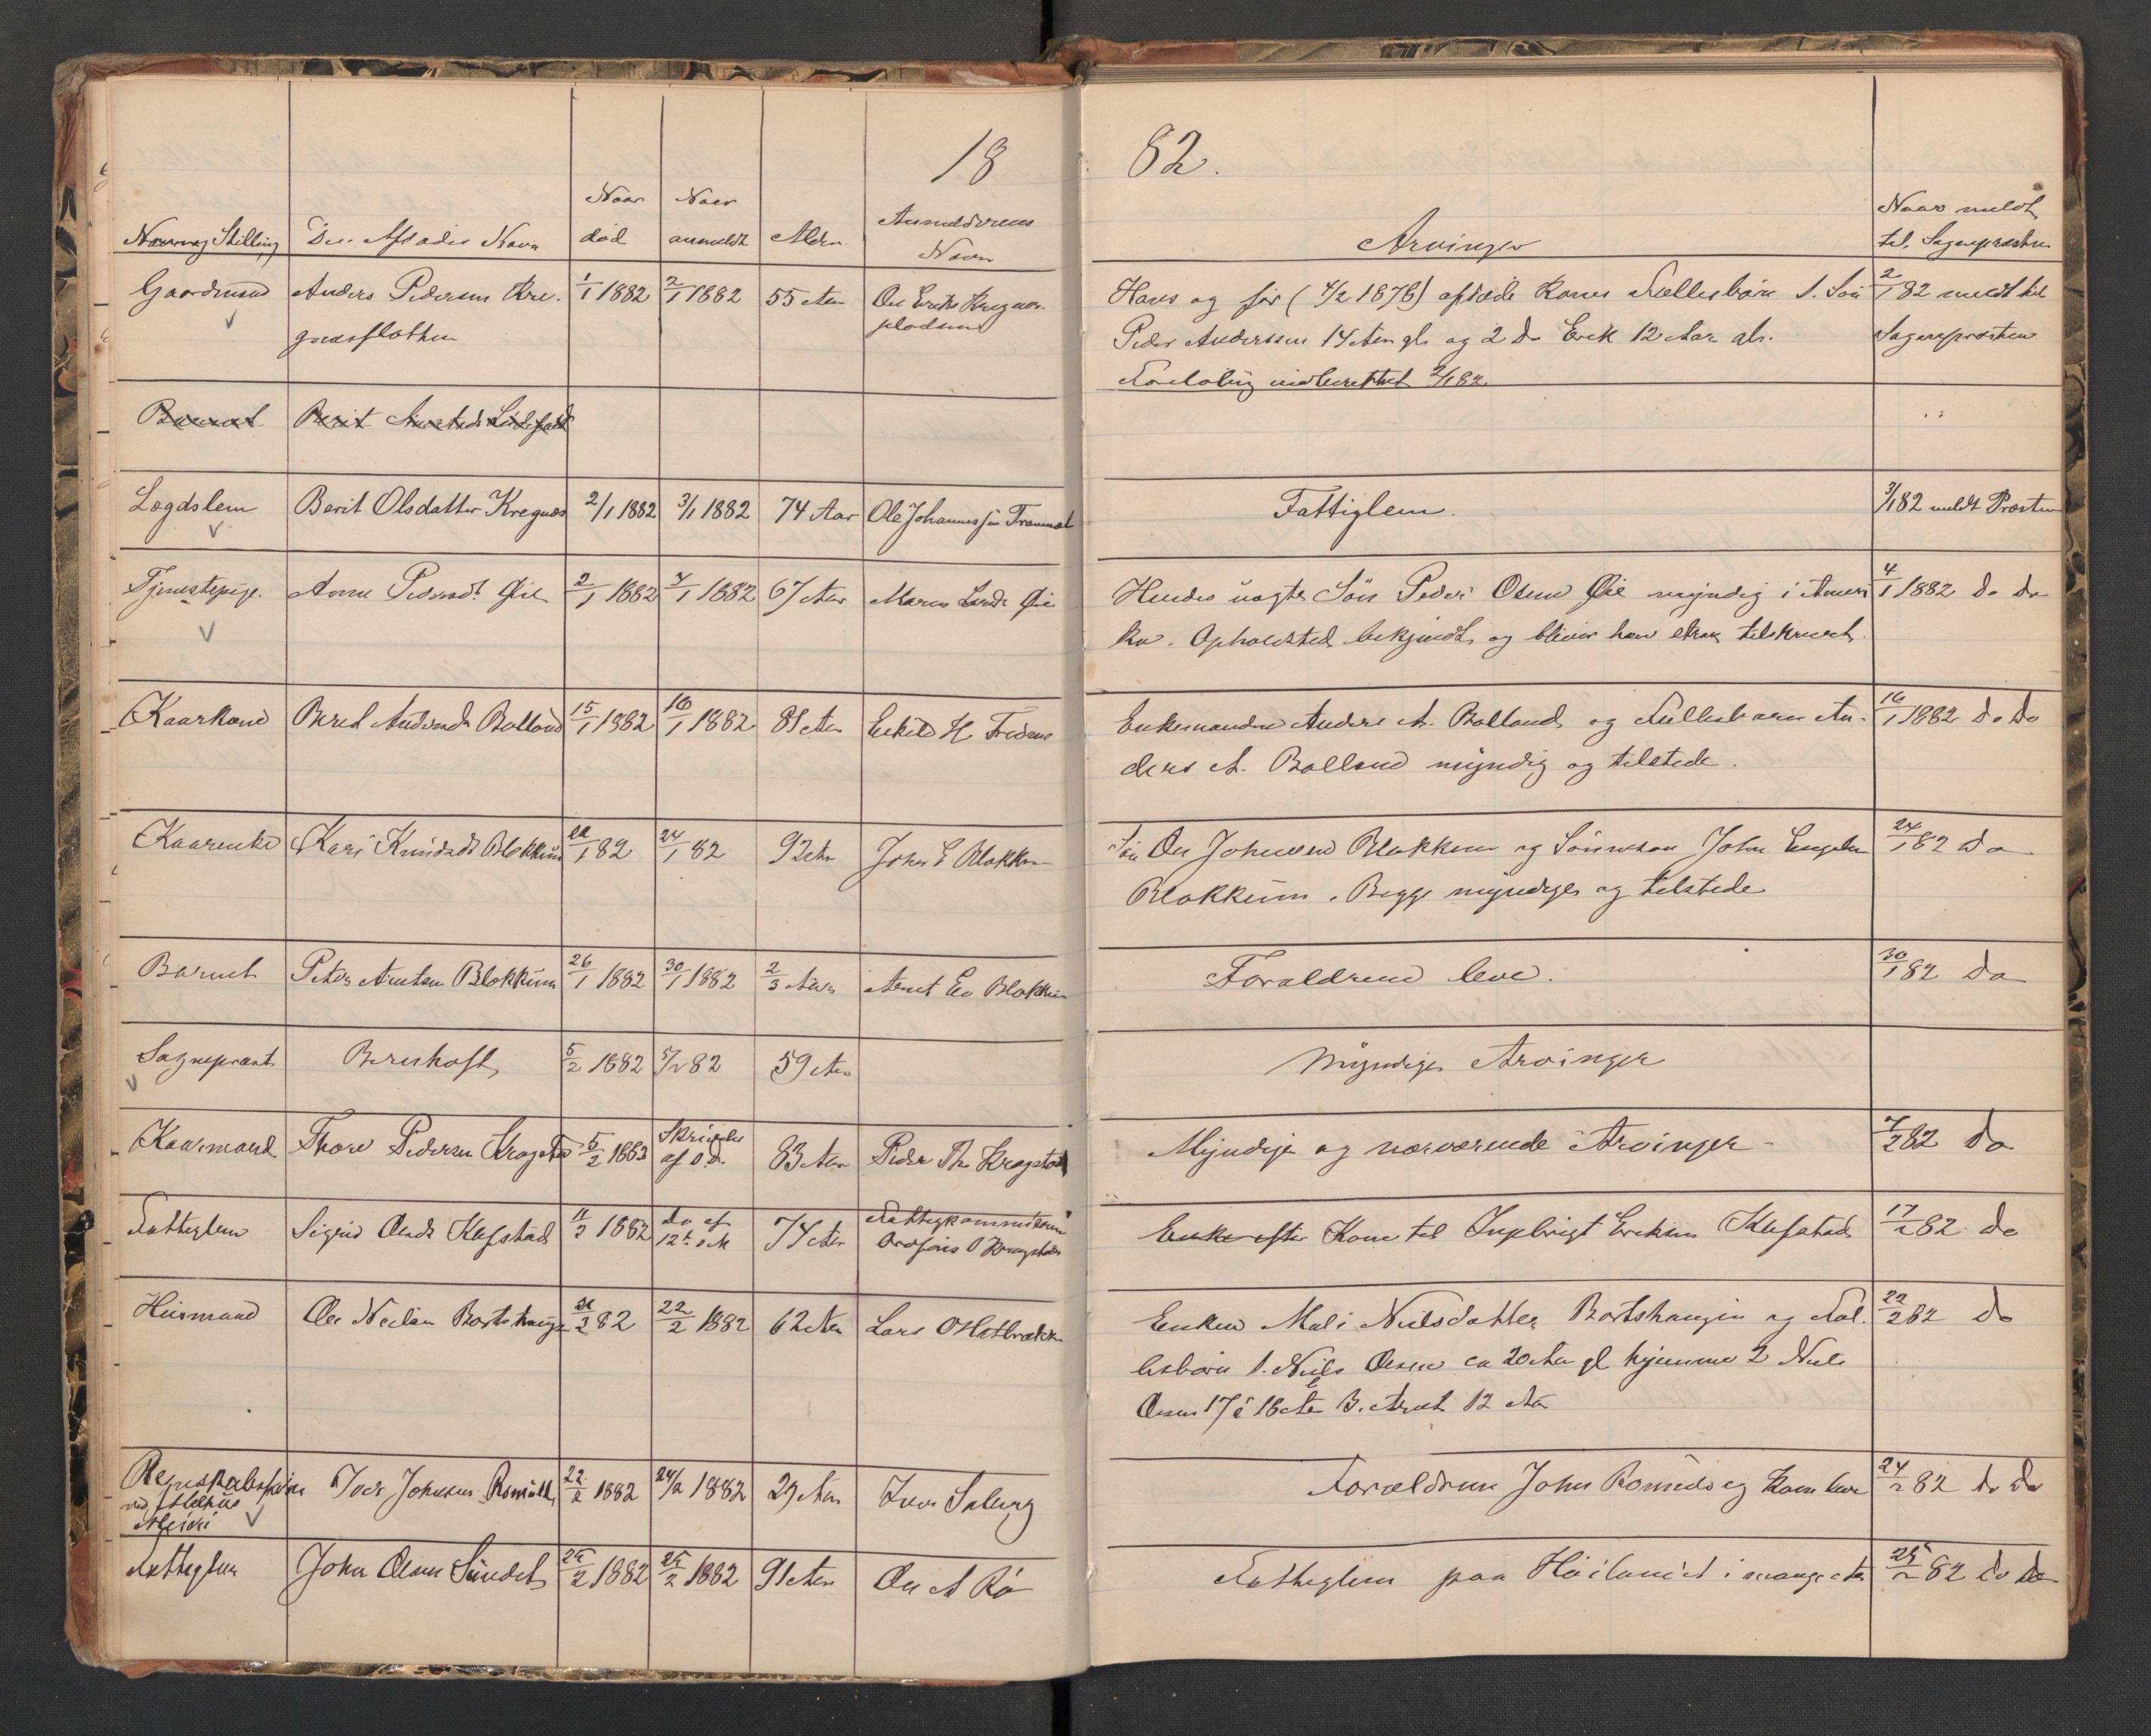 18 82.
Stilling Den Afdødes Navn Naar død Naar anmeldt Alder Anmelderens Navn Arvinger Naar meldt til Sognepræsten
Gaardmand Anders Pedersen Kre- 1/1 1882 2/1 1882 55 Aar Ole Kregnæs- Hans og før ( 1878) afdøde Kones Fællesbørn 1. Søn 2/1 82 meldt til
gnæsflatten Peder Anderssen 14 Aar gl. og 2 do Erik 12 Aar gl. Sognepræsten
Foreløbig indberettet 2/1 82.
Barnet Berit
Legdslem Berit Olsdatter Kregnæs 2/1 1882 3/1 1882 74 Aar Ole Johannessen Fattiglem. 3/1 82 meldt Præsten
Tjenestepige. Anne Pedersdt. Øie 2/1 1882 4/1 1882 67 Aar Øie Hendes uægte Søn Peder Olsen Øie myndig i Ameri 4/1 1882 do do
ka. Opholdsted bekjendt og bliver han strax tilskrevet.
Kaarkone Beret Andersdt Bolland 15/1 1882 16/1 1882 81 Aar Eskild H Enkemanden Anders A. Bolland og Fællesbarn An- 16/1 1882 do do
ders A. Bolland myndig og tilstede.
Kaarenke Kari Knudsdt Blokkum 82 24/1 82 92 Aar John E Blokkum Søn Ole Johnsen Blokkum og Sønnesøn John 24/1 82 do
Blokkum. Begge myndige og tilstede
Barnet Peter Arntsen Blokkum 26/1 1882 30/1 1882 2/3 Aar Arnt Blokkum Forældrene leve. 30/1 82 do
Sognepræst Bernhoft 5/2 1882 5/2 82 59 Aar Myndige Arvinger
Kaarmand Thore Pedersen Kragstad 5/2 1882 Skrivelse af d.d. 83 Aar Peder Th Kragstad Myndige og nærværende Arvinger - 7/2 82 do
Fattiglem Sigrid Olsdt 11/2 1882 do af 12te d M 74 Aar Fattigkommissionens Kragstad Enke efter Kone til Ingebrigt Eriksen 17/2 82 do
Husmand Ole Nielsen Bortshaugen 82 22/2 1882 62 Aar Lars Enken Mali Nielsdatter Bortshaugen og Fæl- 22/2 82 do
lesbørn 1. Niels Olsen ca 20 Aar gl hjemme 2 Nils
Olsen 17 à 18 Aar 3. Arnt 12 Aar
Regnskabsfører ved Iver Johnsen 22/2 1882 24/2 1882 29 Aar Iver Forældrene John og Kone leve 24/2 82 do do
Fattiglem John Olsen Sundet 25/2 1882 25/2 1882 91 Aar Ole A Rø Fattiglem paa i mange Aar 25/2 82 do do